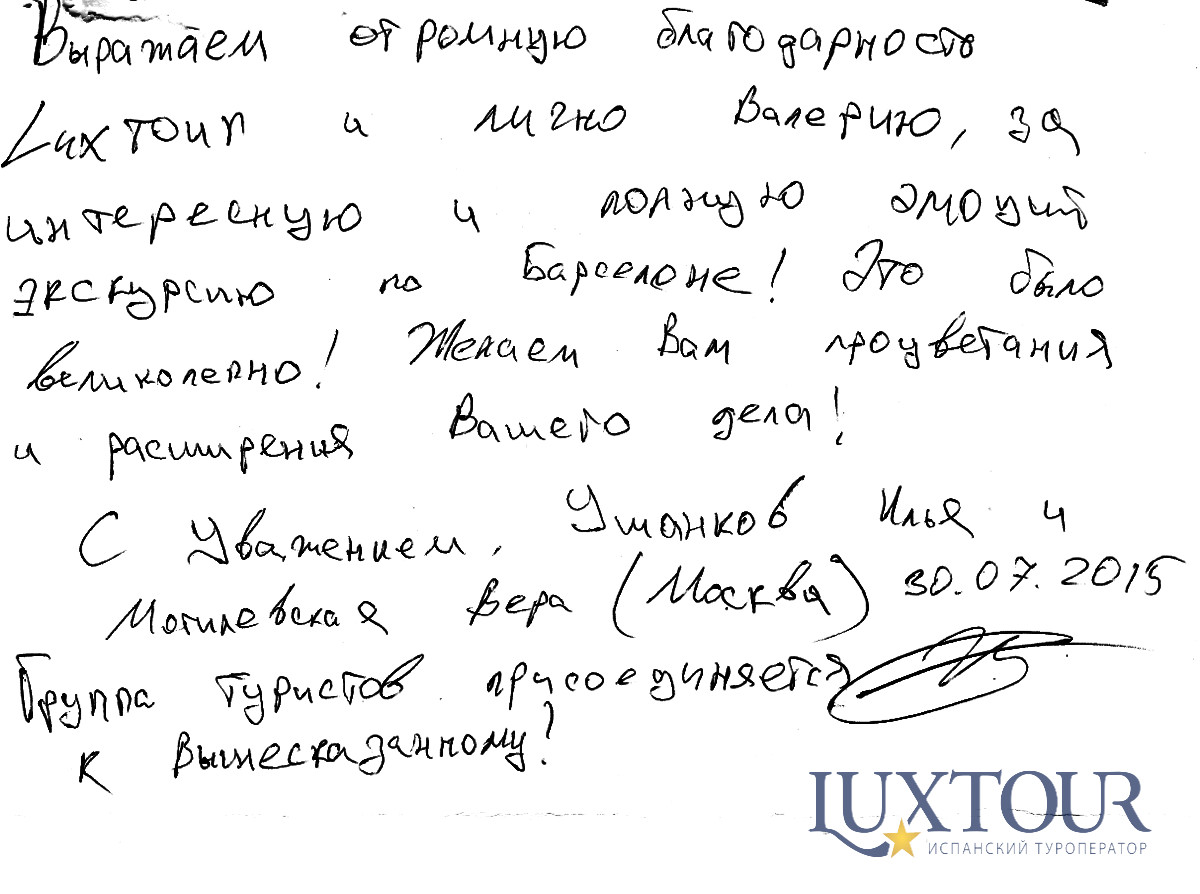 Выражаем огромную благодарность
Luxтour и лично Валерию, за
интересную и полную эмоций
экскурсию по Барселоне! Это было
великолепно! Желаем Вам процветания
и расширения Вашего дела!
С Уважением, Ушанков Илья и
Могилевская Вера (Москва) 30.07.2015
Группа туристов присоединяется
к вышесказанному!
LUXTOUR
ИСПАНСКИЙ ТУРОПЕРАТОР